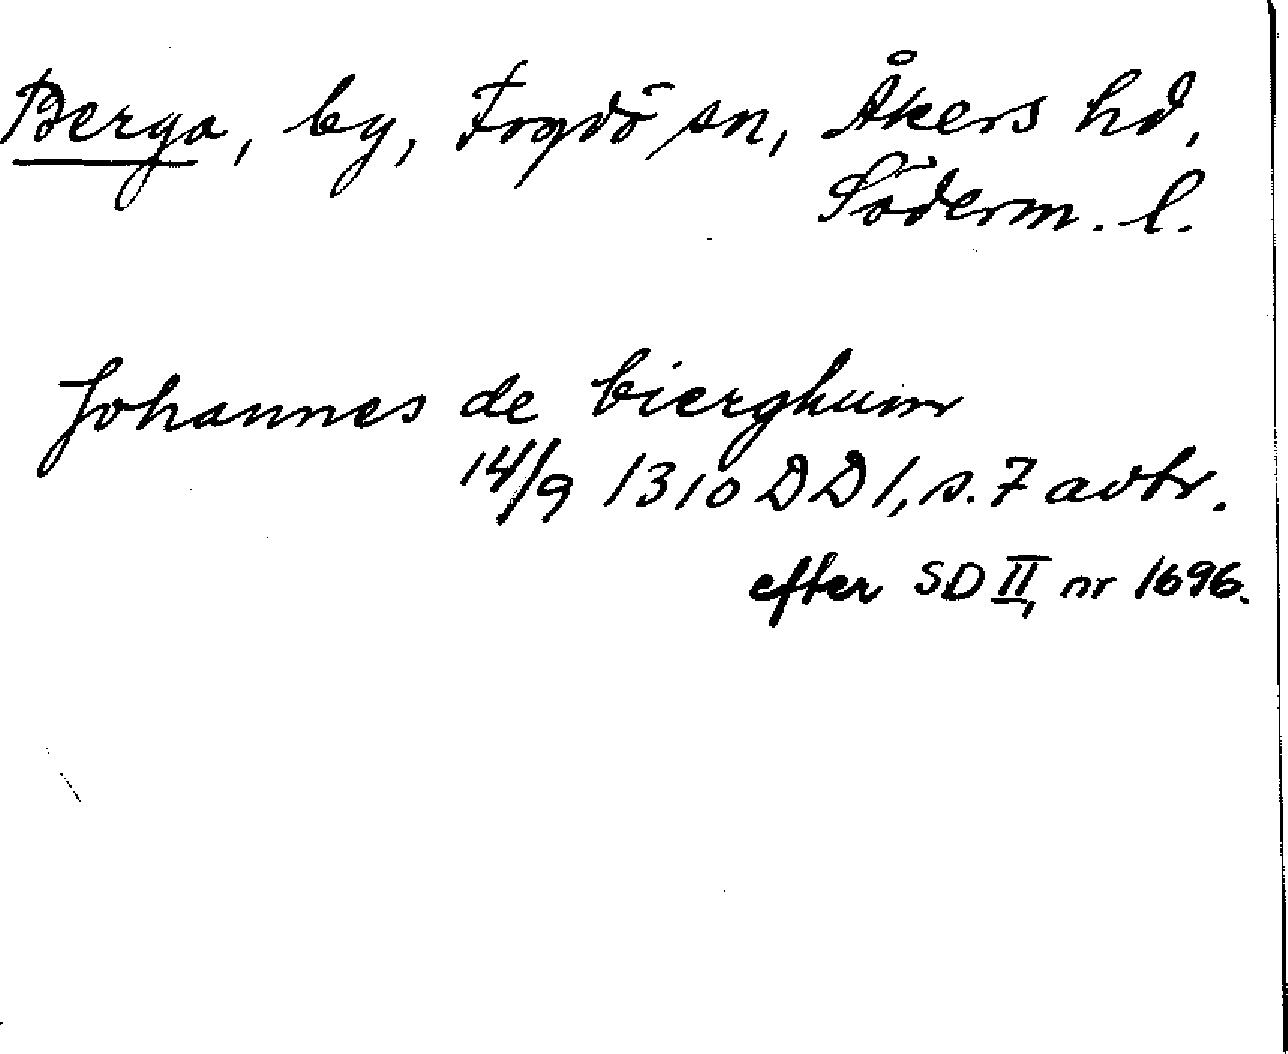 Berga, by, Fogdö sn, Åkers hd,
Söderm. l.
Johannes de bierghum
14/9 1310 DD 1, s. 7 avtr.
efter SD II, nr 1696.